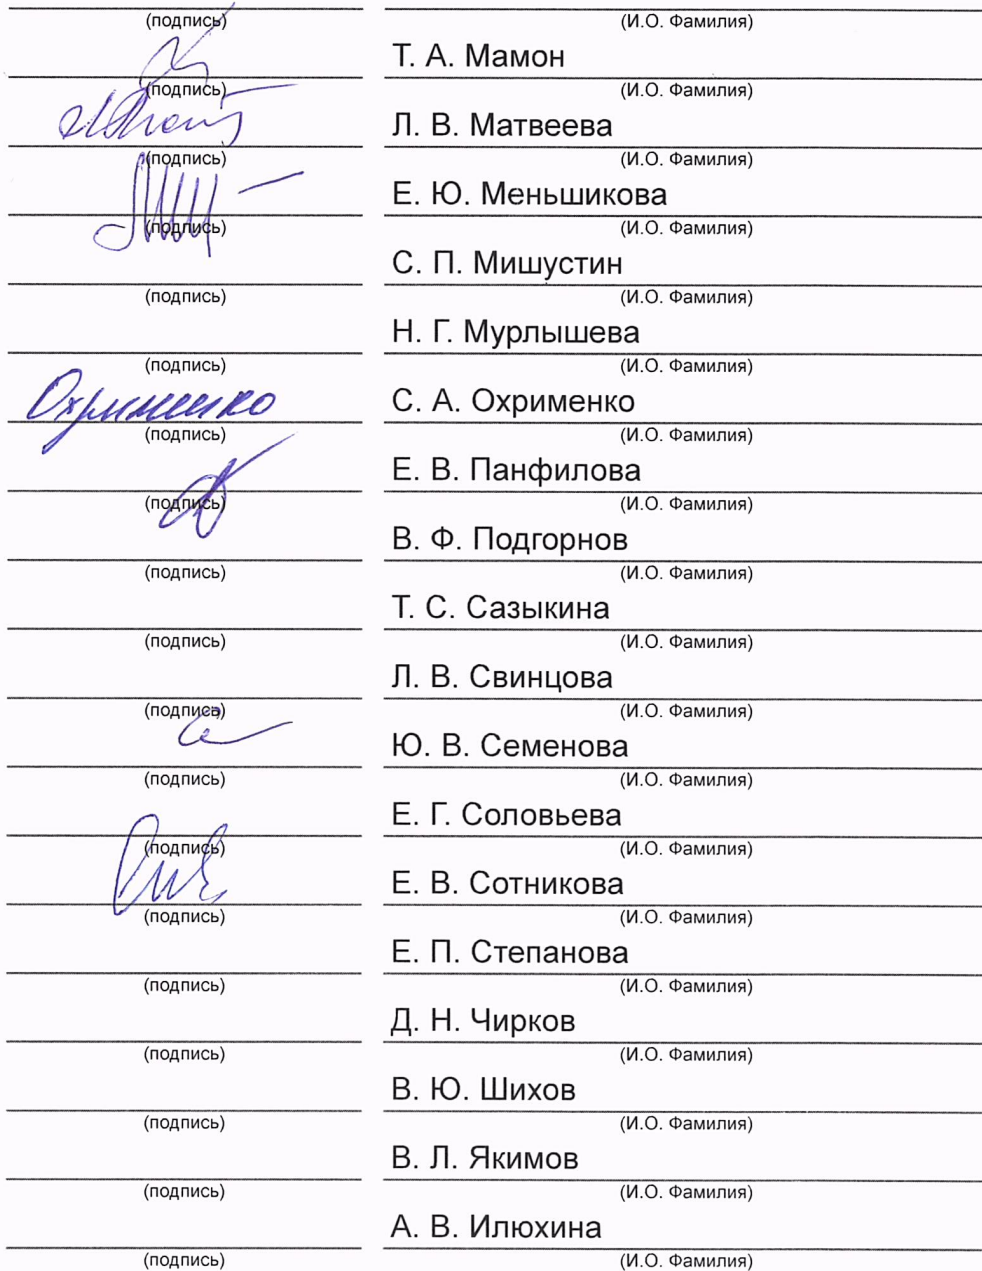 (подпись) (И.О. Фамилия)
Т. А. Мамон
(подпись) (И.О. Фамилия)
Л. В. Матвеева
(подпись) (И.О. Фамилия)
Е. Ю. Меньшикова
(подпись) (И.О. Фамилия)
С. П. Мишустин
(подпись) (И.О. Фамилия)
Н. Г. Мурлышева
(подпись) (И.О. Фамилия)
Охрименко С. А. Охрименко
(подпись) (И.О. Фамилия)
Е. В. Панфилова
(подпись) (И.О. Фамилия)
В. Ф. Подгорнов
(подпись) (И.О. Фамилия)
Т. С. Сазыкина
(подпись) (И.О. Фамилия)
Л. В. Свинцова
(подпись) (И.О. Фамилия)
Ю. В. Семенова
(подпись) (И.О. Фамилия)
Е. Г. Соловьева
(подпись) (И.О. Фамилия)
Е. В. Сотникова
(подпись) (И.О. Фамилия)
Е. П. Степанова
(подпись) (И.О. Фамилия)
Д. Н. Чирков
(подпись) (И.О. Фамилия)
В. Ю. Шихов
(подпись) (И.О. Фамилия)
В. Л. Якимов
(подпись) (И.О. Фамилия)
А. В. Илюхина
(подпись) (И.О. Фамилия)